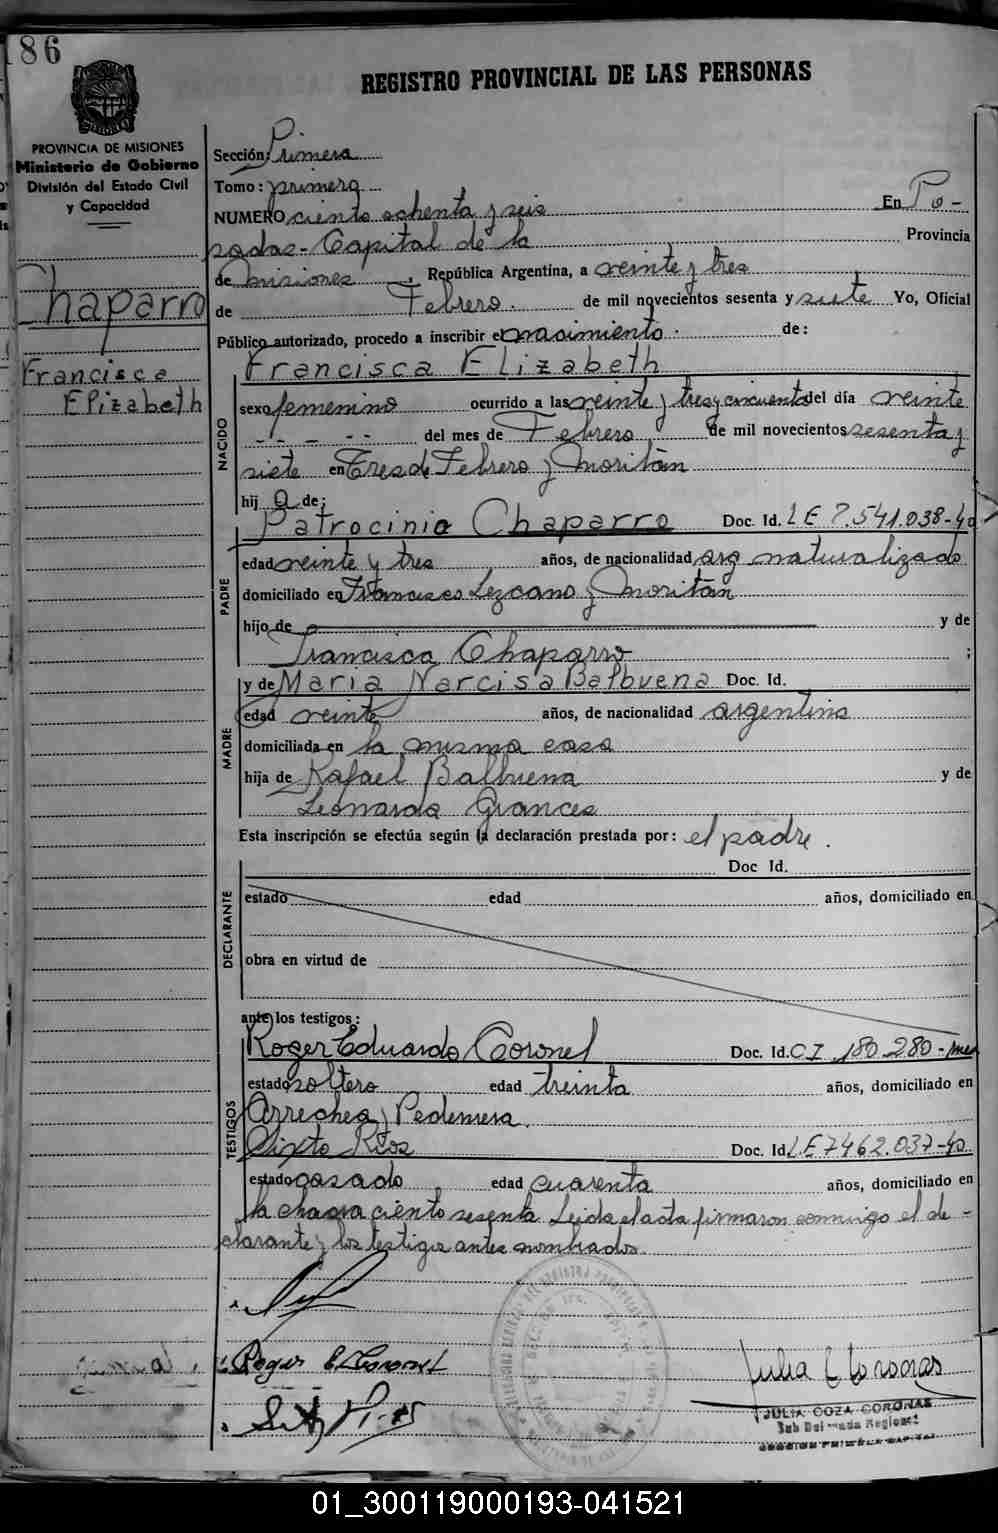 186
REGISTRO PROVINCIAL DE LAS PERSONAS
PROVINCIA DE MISIONES
Ministerio de Gobierno
División del Estado Civil
y Capacidad
Chaparro
Francisca
Elizabeth
Sección: Primera
Tomo: primera
NUMERO ciento ochenta y seis En Po-
sadas-Capital de la Provincia
de Misiones, República Argentina, a veinte y tres
de Febrero. de mil novecientos sesenta y siete Yo, Oficial
Público autorizado, procedo a inscribir el nacimiento. de:
Francisca Elizabeth
NACIDO
sexo femenino ocurrido a las veinte y tres y cincuenta del día veinte
- - - - - del mes de Febrero de mil novecientos sesenta y
siete en Tres de Febrero y Moritán
hij a de:
Patrocinio Chaparro Doc. Id. LE 7.541.038-
PADRE
edad veinte y tres años, de nacionalidad arg naturalizado
domiciliado en Francisco Lezcano y Moritán
hijo de y de
Francisca Chaparro ;
y de Maria Narcisa Balbuena Doc. Id.
MADRE
edad veinte años, de nacionalidad argentina
domiciliada en la misma casa
hija de Rafael Balbuena y de
Leonarda Grances
Esta inscripción se efectúa según la declaración prestada por: el padre.
Doc Id.
DECLARANTE
estado edad años, domiciliado en
obra en virtud de
ante los testigos:
Roger Eduardo Coronel Doc. Id. CI 180.280-mes
TESTIGOS
estado soltero edad treinta años, domiciliado en
Arrechea y Pedernera.
Sixto Ríos Doc. Id. LE 7462.037-
estado casado edad cuarenta años, domiciliado en
la chacra ciento sesenta Leida el acta firmaron conmigo el de-
clarante y los testigos antes nombrados.
Roger E Coronel
Julia C Coronas
JULIA COZA CORONAS
Sub Delegada Regional
SECCION PRIMERA CAPITAL
01_300119000193-041521